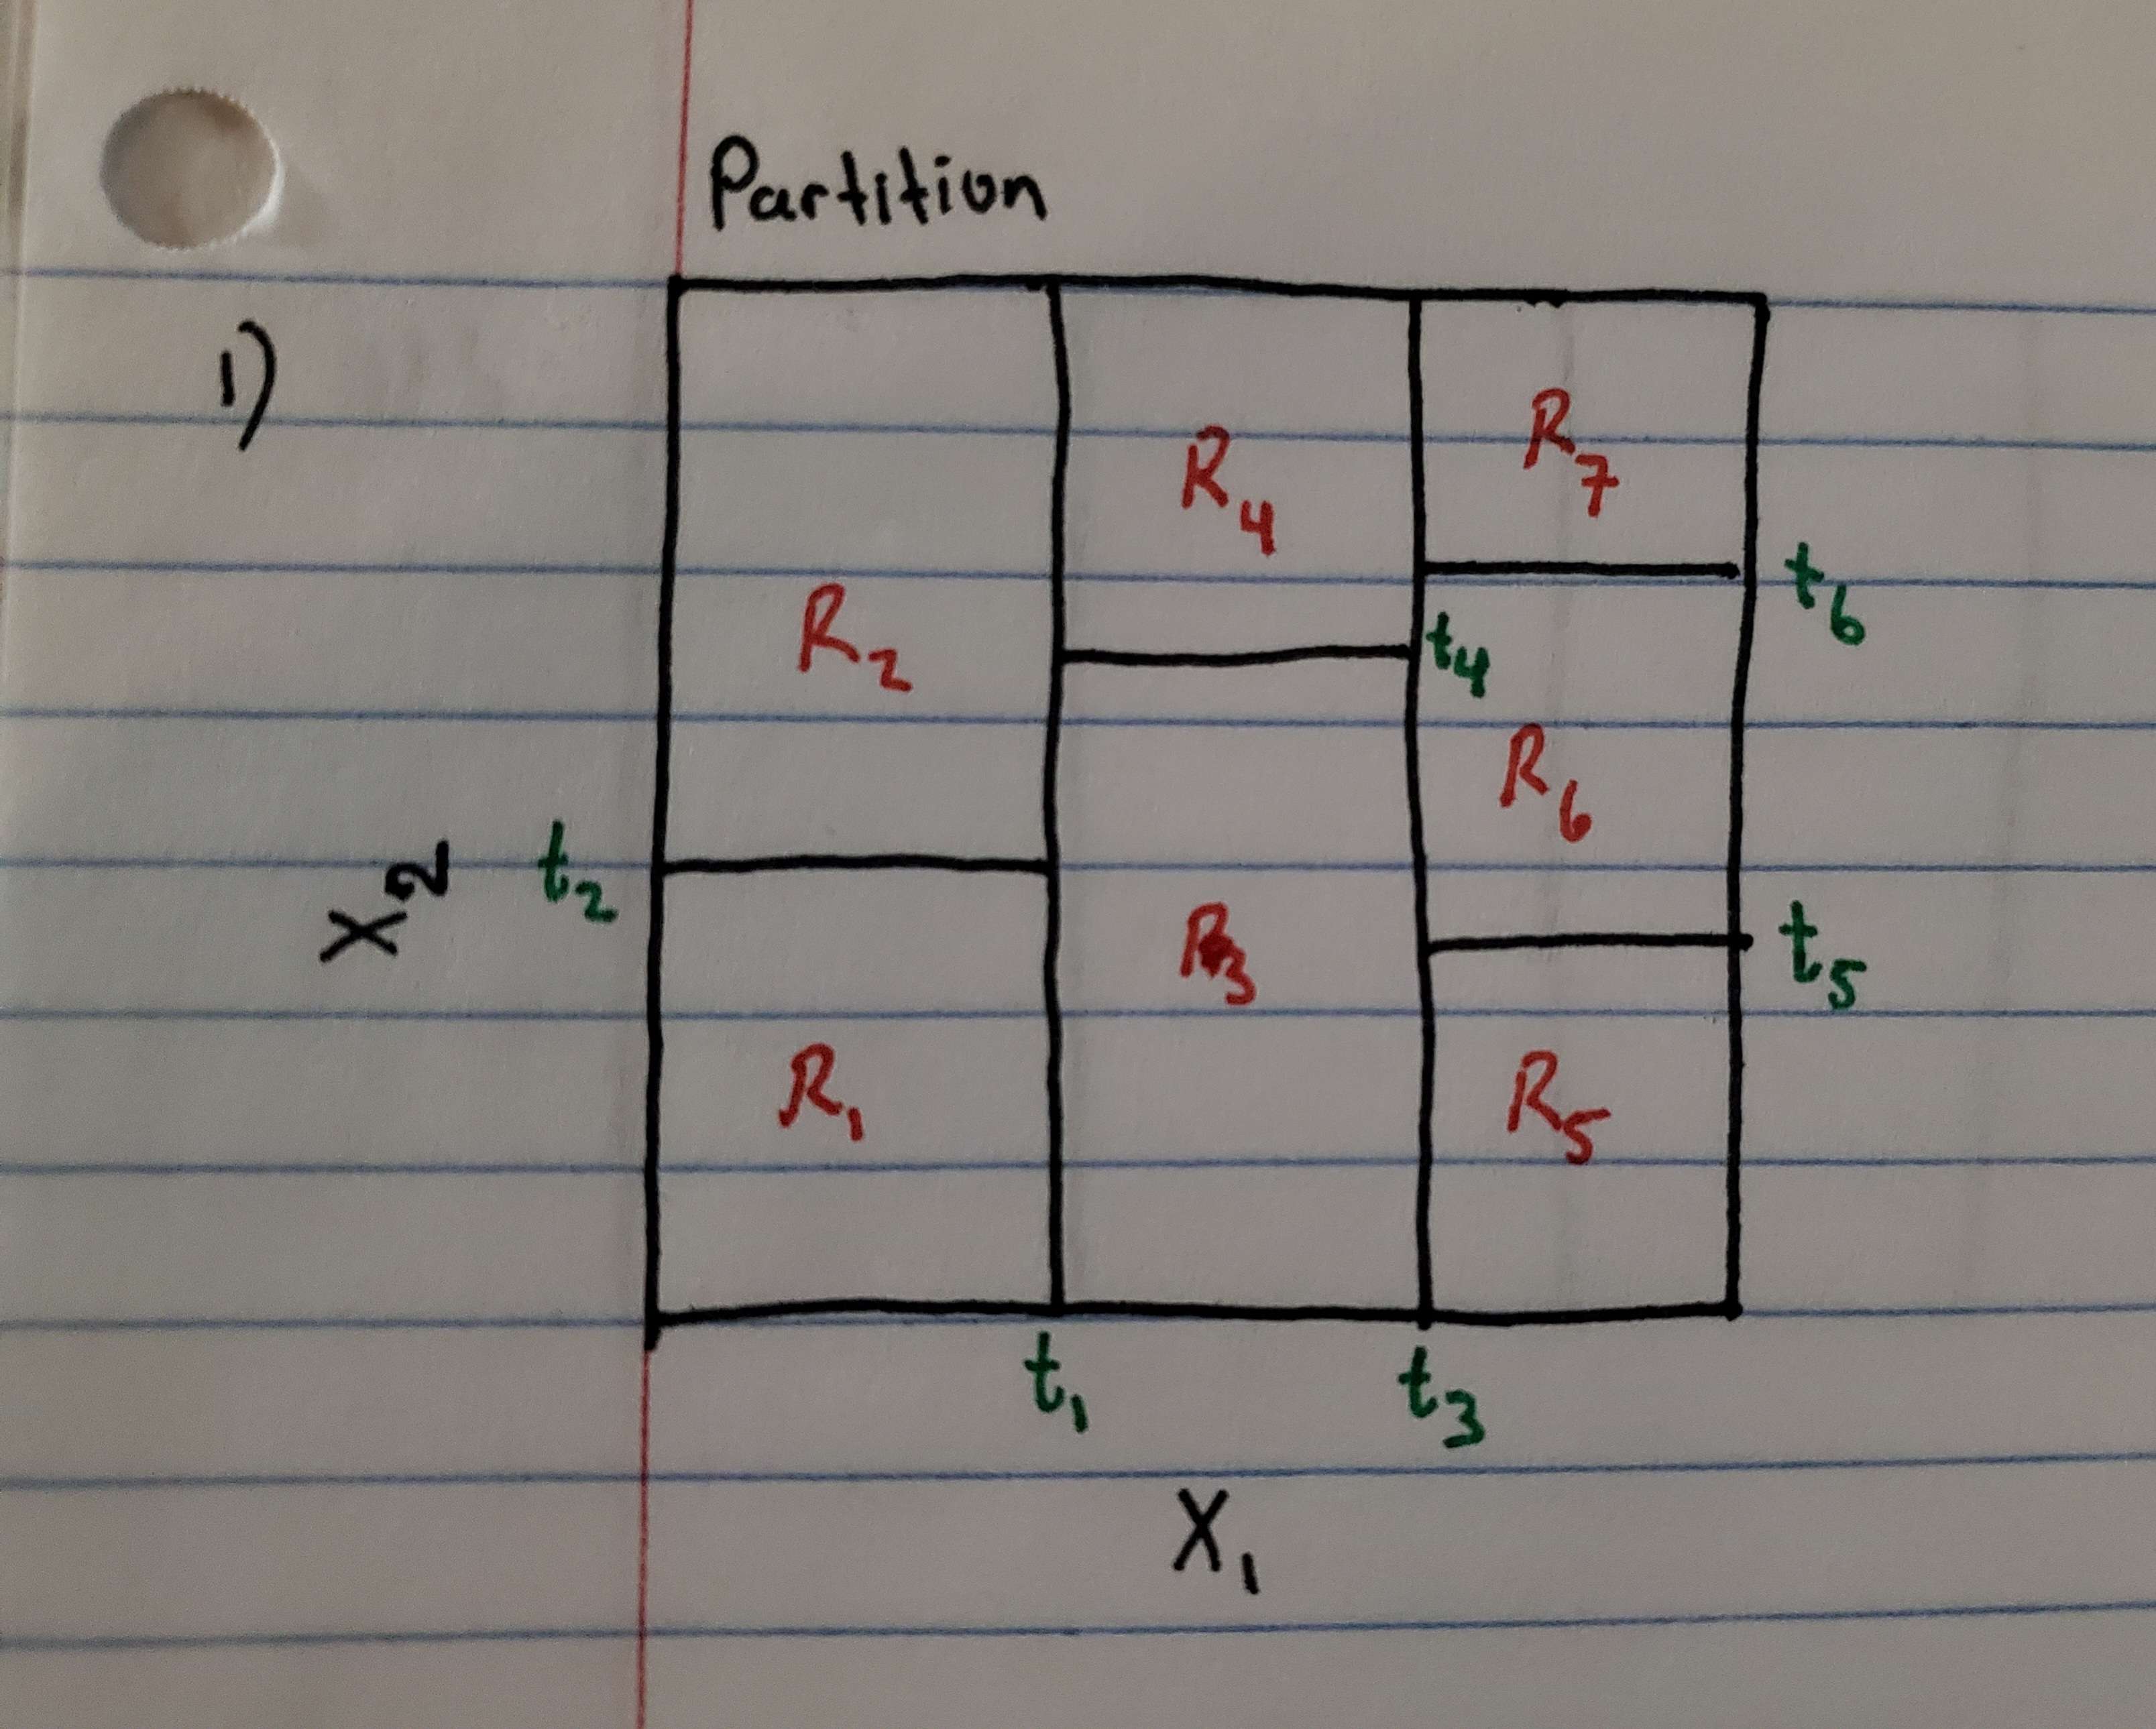 Partition
1)
R₄ R₇
R₂ t₄ t₆
R₆
X₂ t₂ R₃ t₅
R₁ R₅
t₁ t₃
X₁